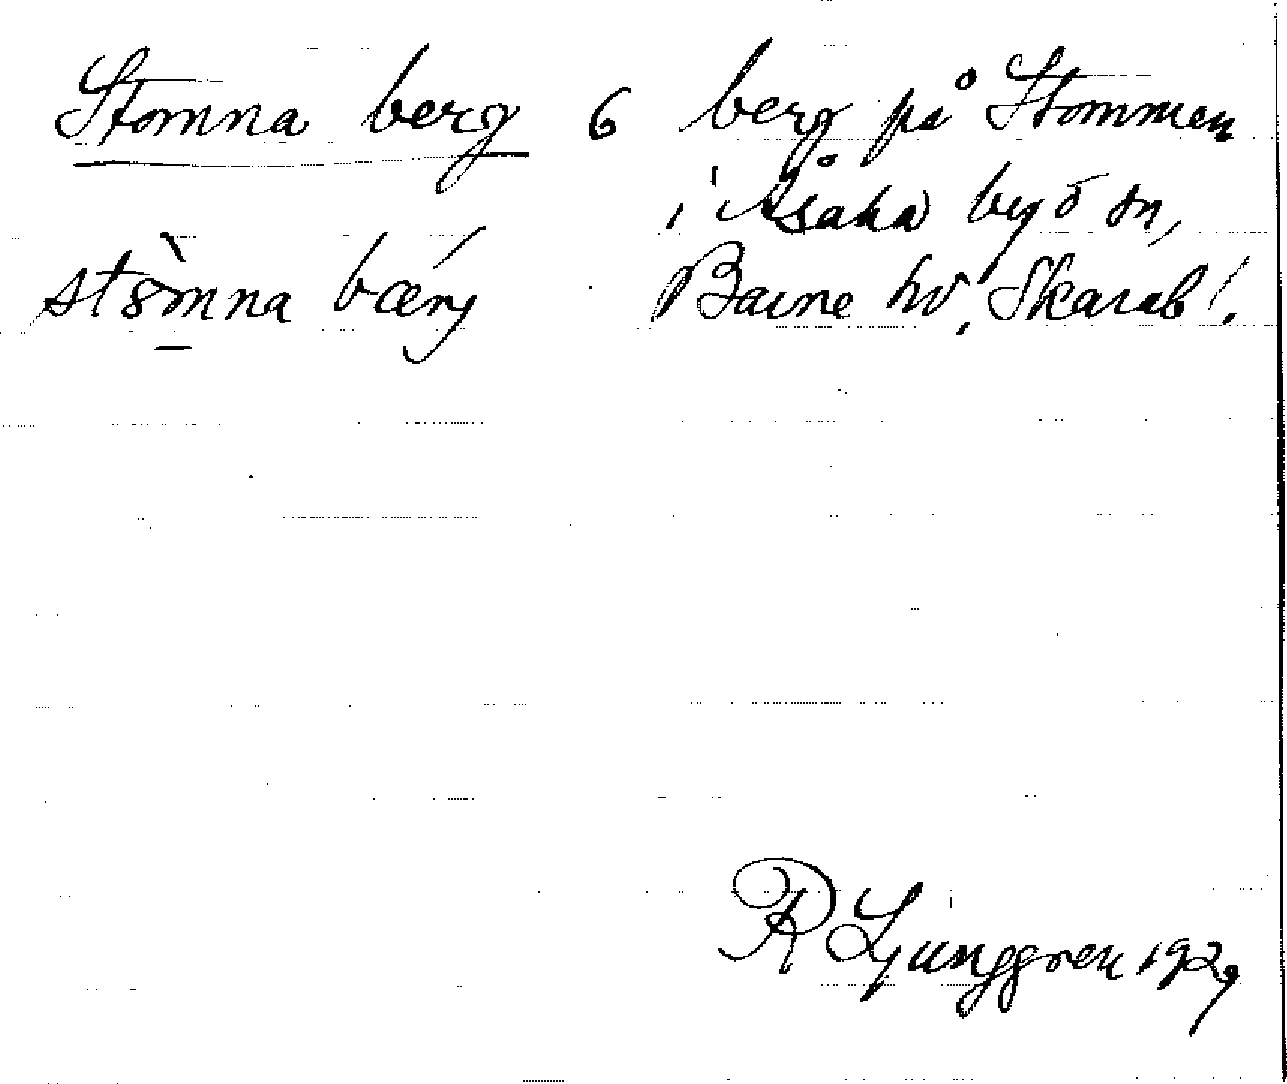 Stomna berg 6 berg på Stommen
i Åsaka by o sn,
stòmna bærj Barne hd, Skarab l.
R Ljunggren 1929